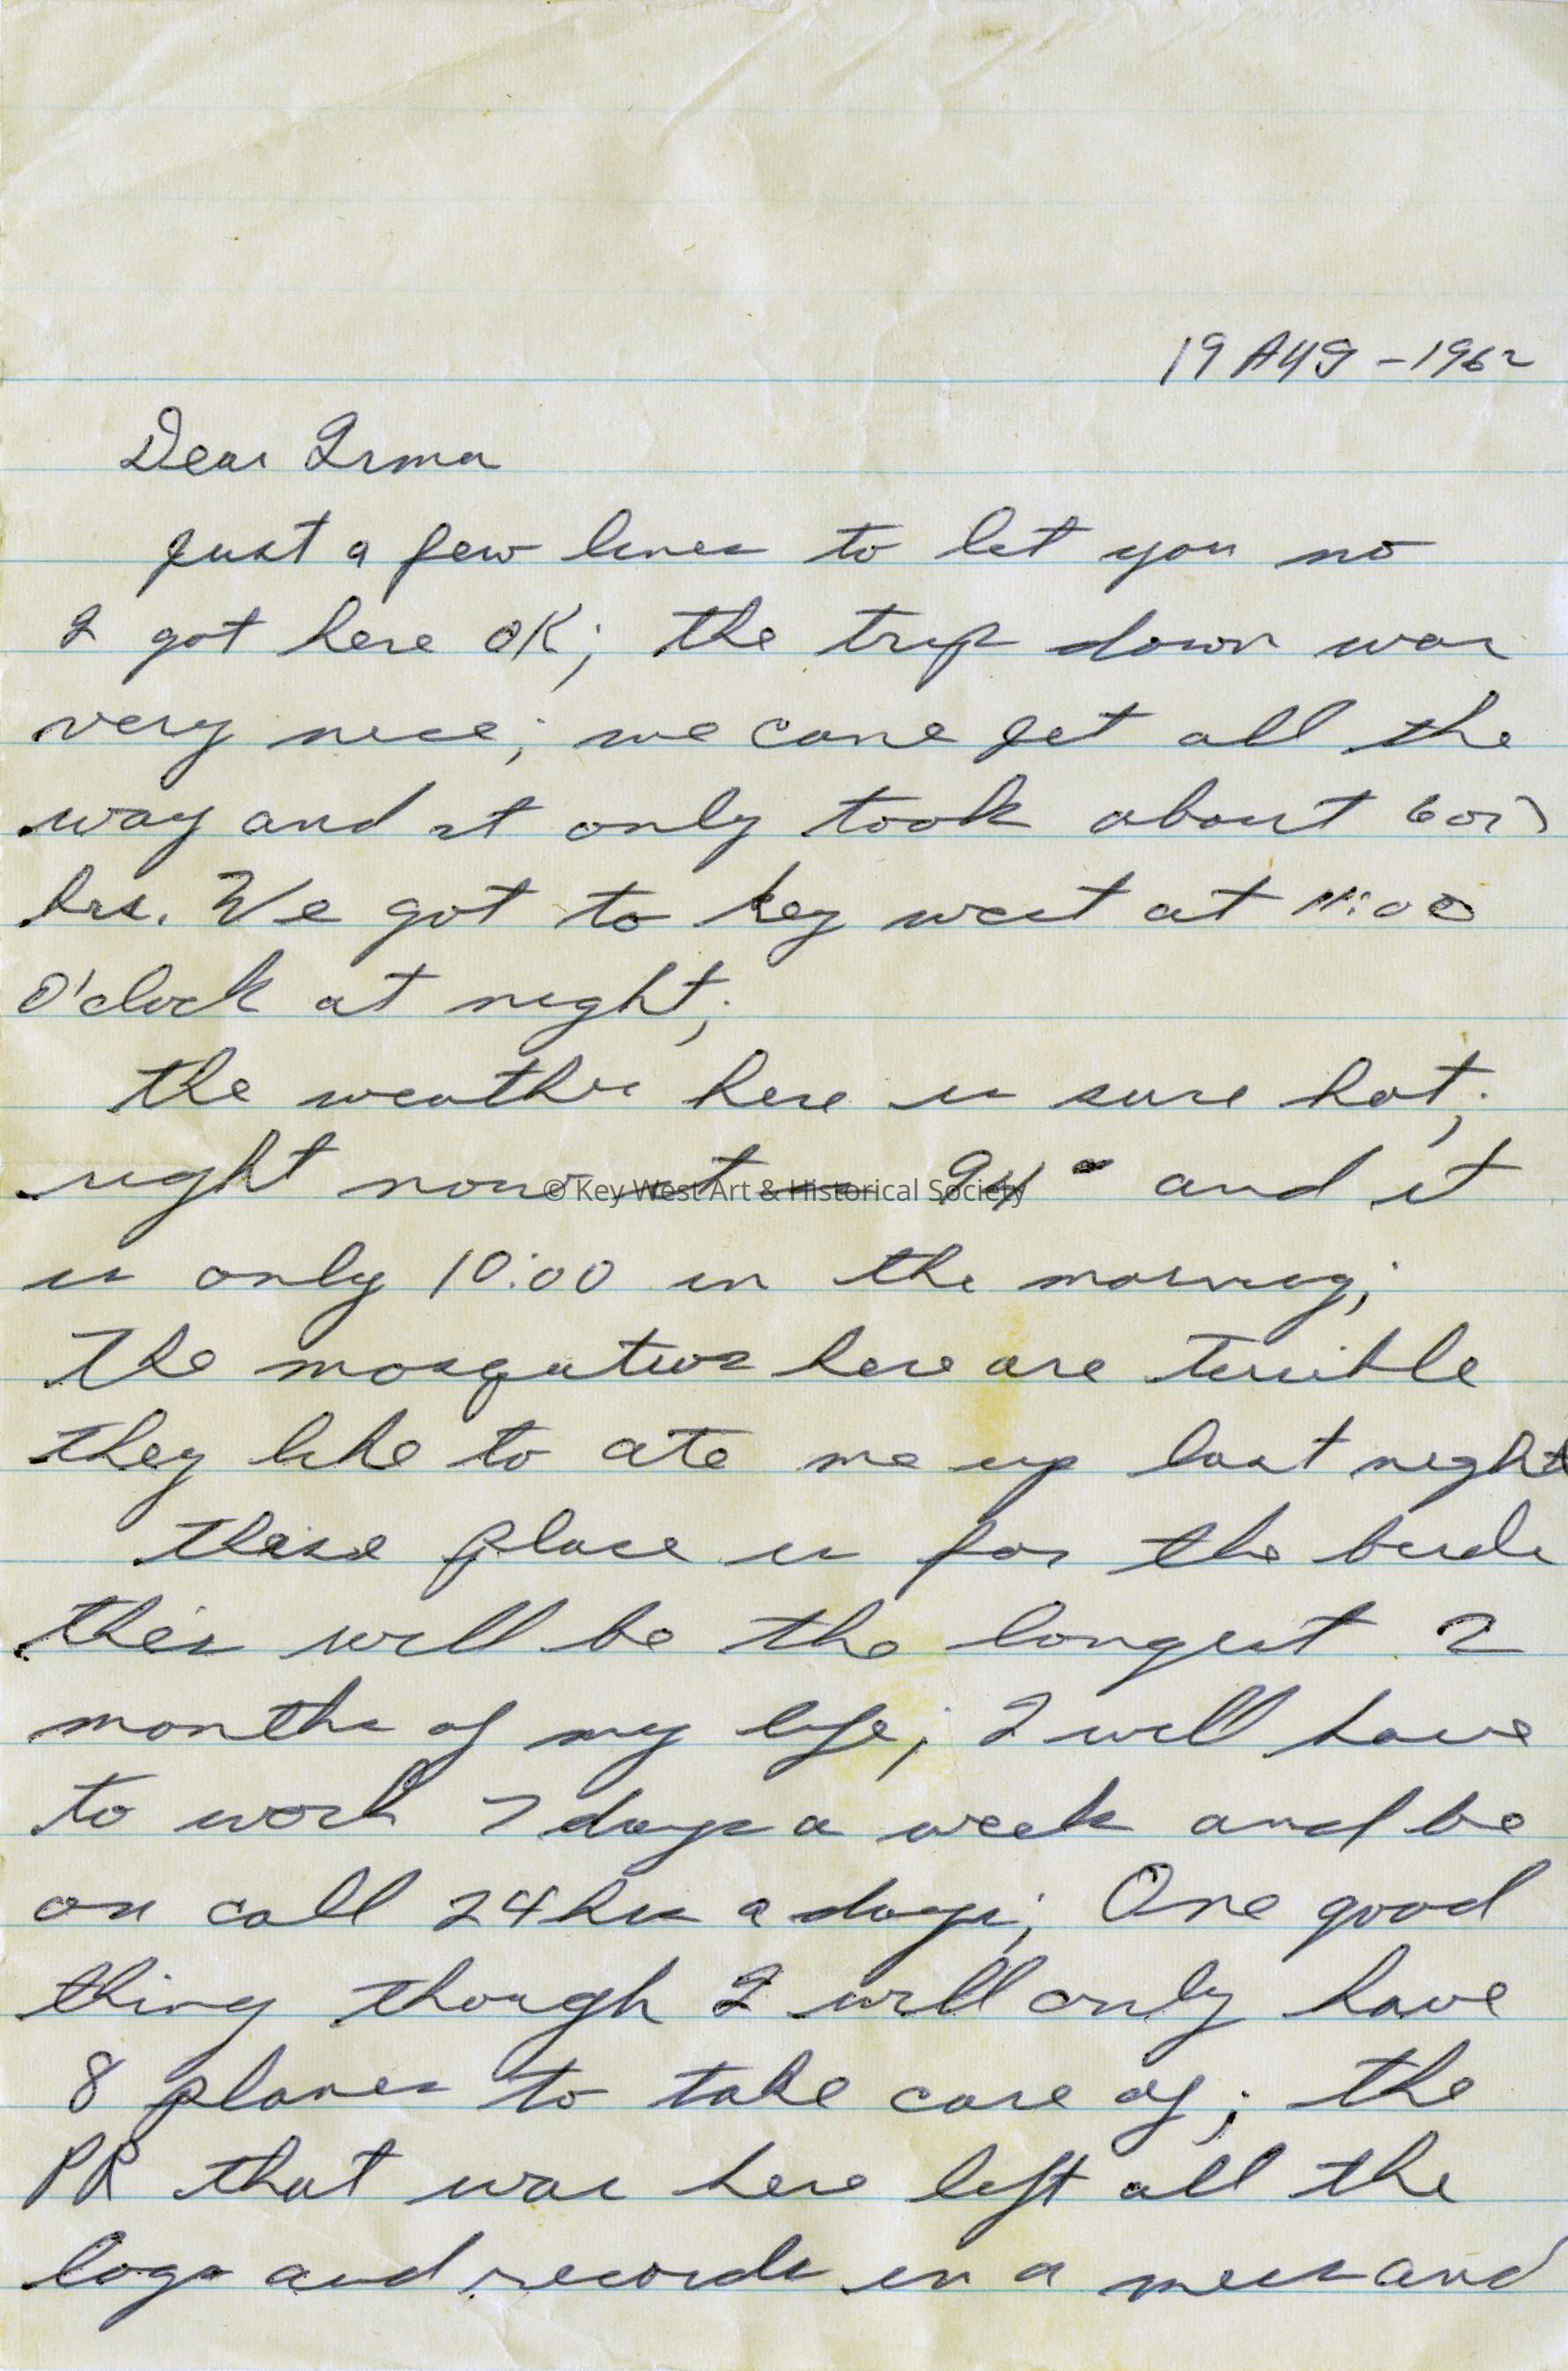 19 AUG - 1962
Dear Irma
Just a few lines to let you no
I got here OK; the trip down was
very nice; we cane jet all the
way and it only took about 6 or 7
hrs. We got to key west at 11:00
O'clock at night;
the weather here is sure hot;
right now it is 94° and it
© Key West Art & Historical Society
is only 10:00 in the morning;
The mosquitios here are terrible
they like to ate me up last night
these place is for the birds
this will be the longest 2
months of my life; I will have
to work 7 days a week and be
on call 24 hrs a days; One good
thing though I will only have
8 planes to take care of; the
PR that was here left all the
logs and records in a mess and